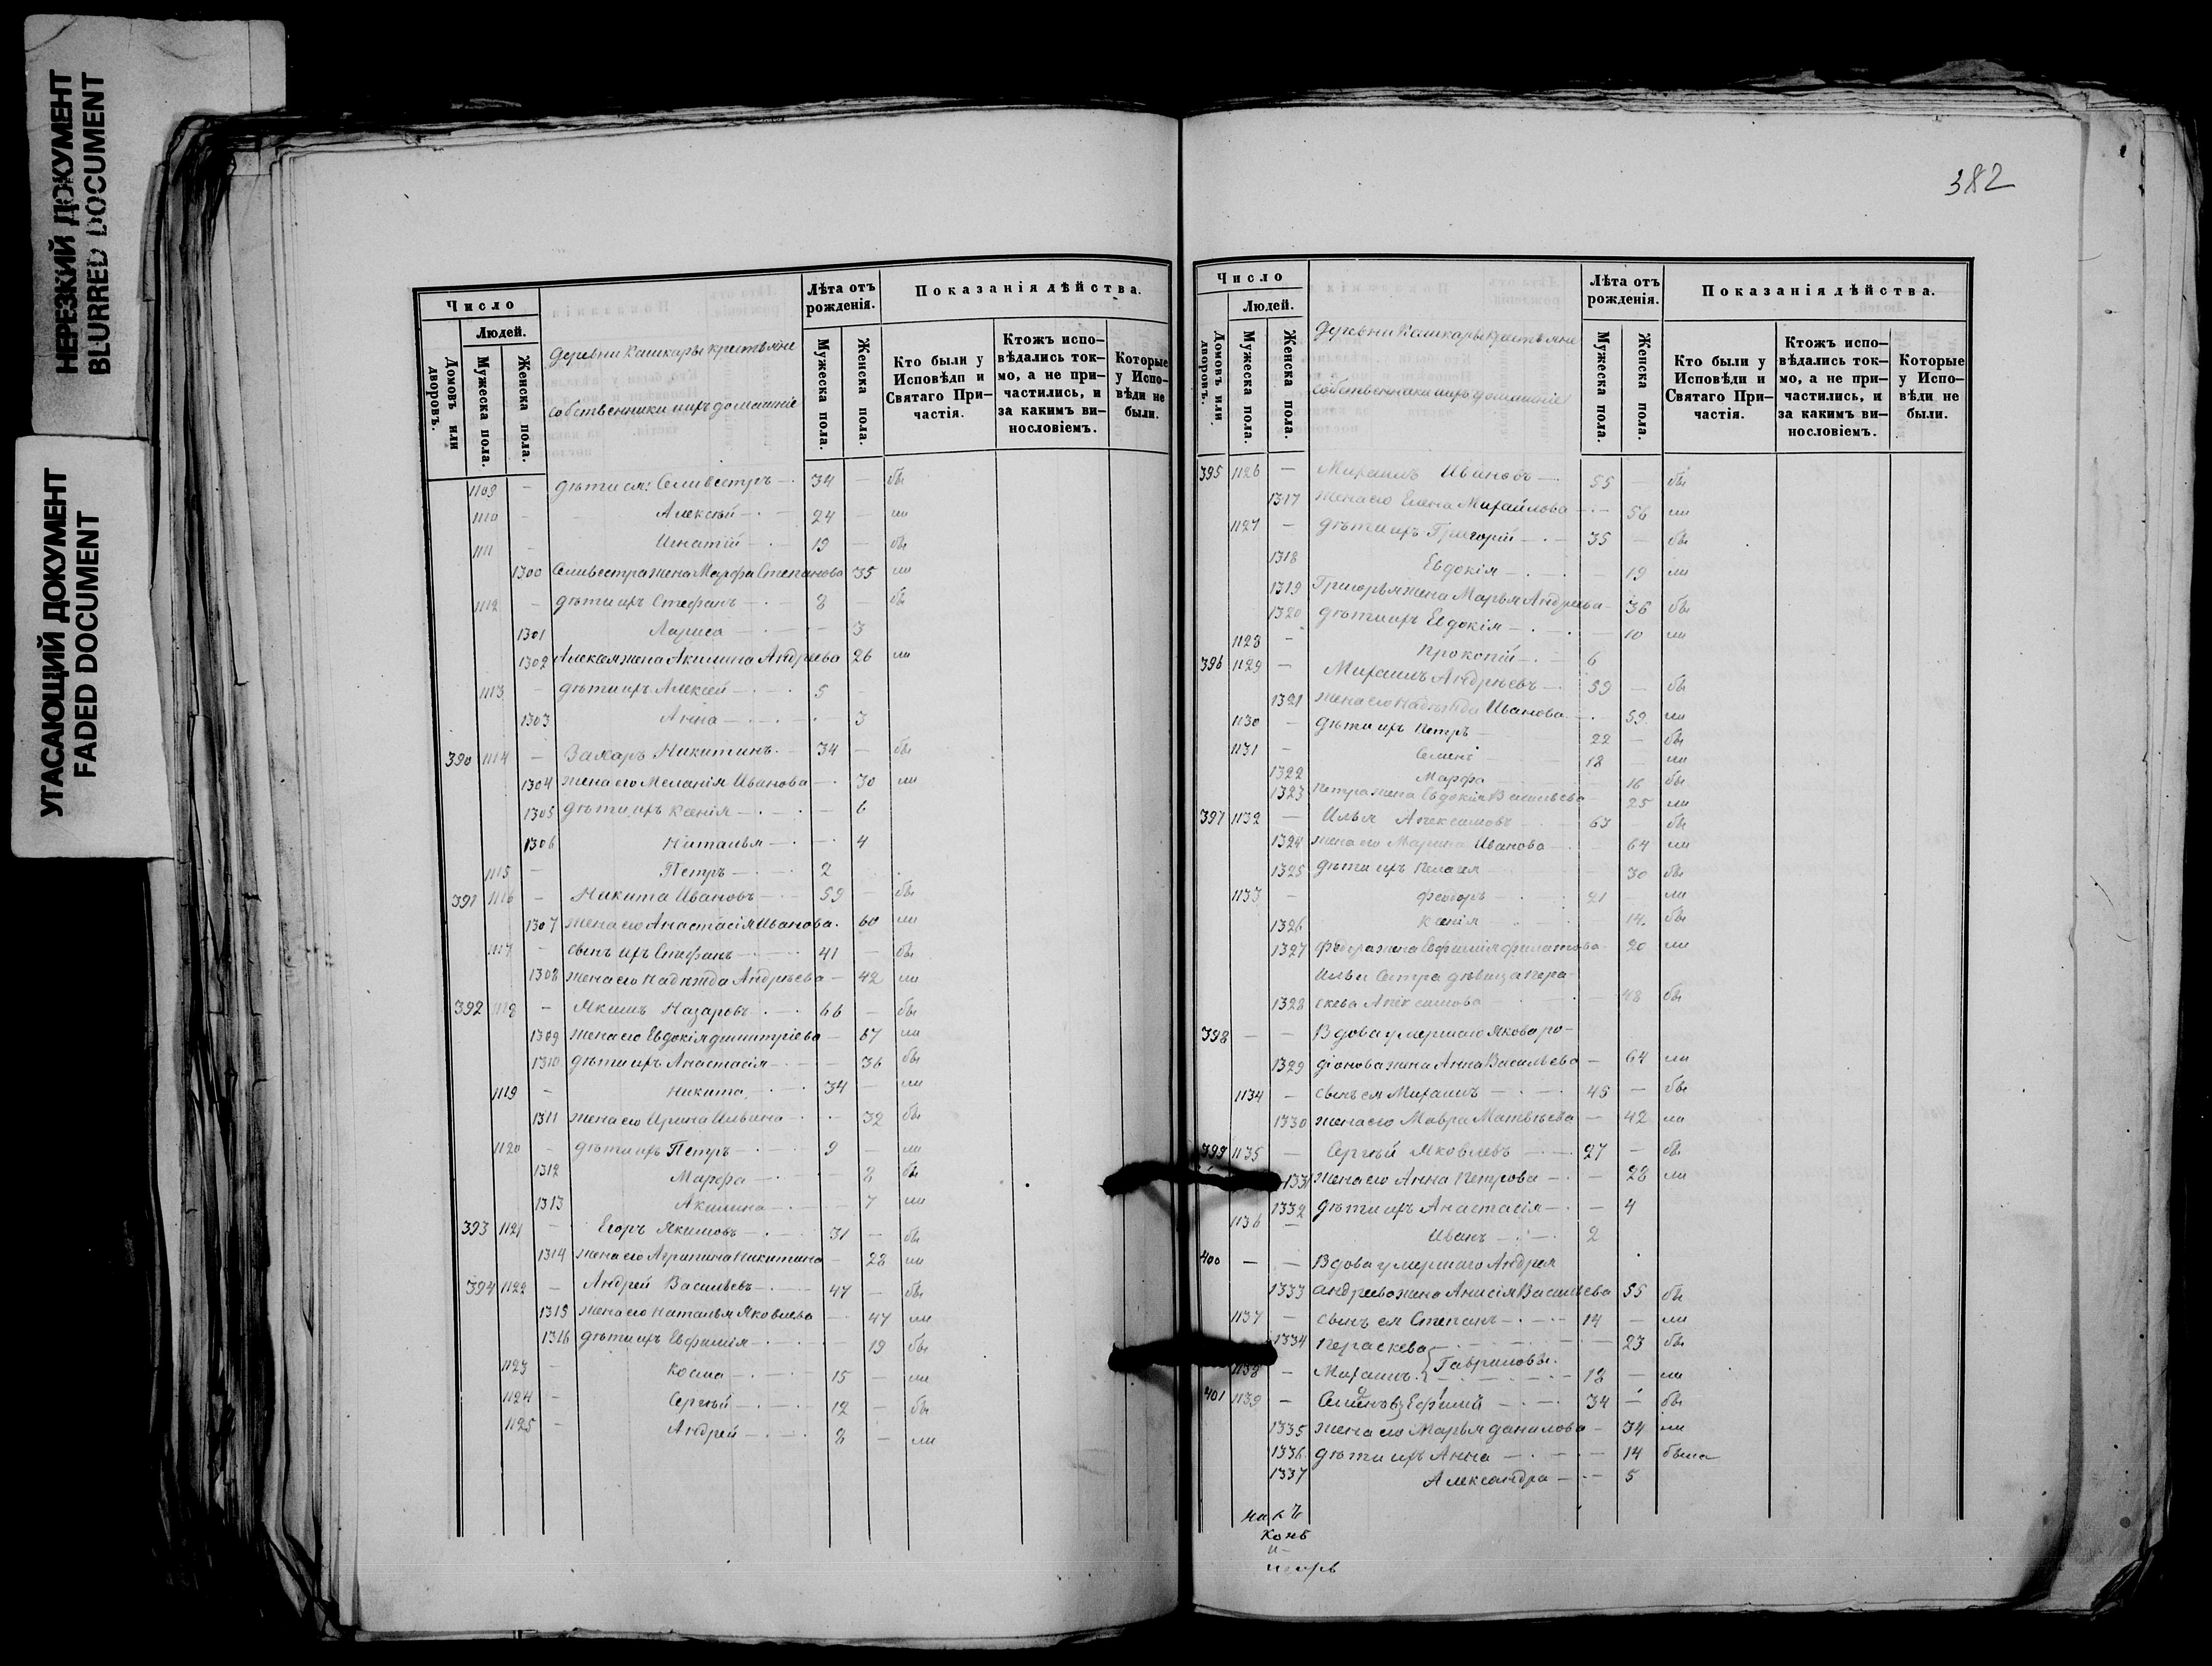 НЕРЕЗКИЙ ДОКУМЕНТ
BLURRED DOCUMENT
УГАСАЮЩИЙ ДОКУМЕНТ
FADED DOCUMENT
Число
Людей.
Домовъ или дворовъ.
Мужеска пола.
Женска пола.
Деревни Кашкары крестьяне
собственники ихъ домашніе
Лѣта отъ рожденія.
Мужеска пола.
Женска пола.
Показанія дѣйства.
Кто были у Исповѣди и Святаго Причастія.
Ктожъ исповѣдались токмо, а не причастились, и за какимъ винословіемъ.
Которые у Исповѣди не были.
1109 — дѣти ея: Селивестръ — 34 — бы
1110 — Алексѣй — 24 — ли
1111 — Игнатій — 19 — бы
1300 Селивестра жена Марфа Степанова 35 ли
1112 — дѣти ихъ Стефанъ — 8 — бы
1301 Лариса — 3
1302 Алексея жена Акилина Андреева 26 ли
1113 — дѣти ихъ Алексей — 5 —
1303 Анна — 3
390 1114 — Захаръ Никитинъ — 34 — бы
1304 жена его Меланія Иванова — 30 ли
1305 дѣти ихъ Ксенія — 6
1306 Наталья — 4
1115 — Петръ — 2
391 1116 — Никита Ивановъ — 59 — бы
1307 жена его Анастасія Иванова. 60 ли
1117 — сынъ ихъ Стефанъ — 41 — бы
1308 жена его Надѣжда Андрѣева — 42 ли
392 1118 — Якимъ Назаровъ — 66 — бы
1309 жена его Евдокія Димитріева — 67 ли
1310 дѣти ихъ Анастасія — 36 бы
1119 — Никита — 34 — ли
1311 жена его Ирина Ильина — 32 бы
1120 — дѣти ихъ Петръ — 9 — ли
1312 Марфа — 8 бы
1313 Акилина — 7 ли
393 1121 — Егоръ Якимовъ — 31 — бы
1314 жена его Агрипина Никитина — 28 ли
394 1122 — Андрей Васильевъ — 47 — бы
1315 жена его Наталья Яковлева — 47 ли
1316 дѣти ихъ Евфимія — 19 бы
1123 — Косма — 15 — ли
1124 — Сергѣй — 12 — бы
1125 — Андрей — 8 — ли
382
Число
Людей.
Домовъ или дворовъ.
Мужеска пола.
Женска пола.
Деревни Кашкары крестьяне
собственники ихъ домашніе
Лѣта отъ рожденія.
Мужеска пола.
Женска пола.
Показанія дѣйства.
Кто были у Исповѣди и Святаго Причастія.
Ктожъ исповѣдались токмо, а не причастились, и за какимъ винословіемъ.
Которые у Исповѣди не были.
395 1126 — Михаилъ Ивановъ — 55 — бы
1317 жена его Елена Михайлова — 56 ли
1127 — дѣти ихъ Григорій — 35 — бы
1318 Евдокія — 19 ли
1319 Григорья жена Марья Андреева — 36 бы
1320 дѣти ихъ Евдокія — 10 ли
1128 — Прокопій — 6
396 1129 — Михаилъ Андрѣевъ — 59 — бы
1321 жена его Надѣжда Иванова — 59 ли
1130 — дѣти ихъ Петръ — 22 — бы
1131 — Семенъ 18 — ли
1322 Марфа 16 бы
1323 Петра жена Евдокія Васильева 25 ли
397 1132 — Илья Алексимовъ — 63 — бы
1324 жена его Марина Иванова — 64 ли
1325 дѣти ихъ Пелагея 30 бы
1133 — Феодоръ — 21 — ли
1326 Ксенія 14 бы
1327 Федора жена Евфимія Филатова 20 ли
Ильи Сестра дѣвица Пера-
1328 скева Алексимова — 48 бы
398 — — Вдова умершаго Якова Ро-
1329 діонова жена Анна Васильева — 64 ли
1134 — сынъ ея Михаилъ — 45 — бы
1330 жена его Мавра Матвѣева — 42 ли
399 1135 — Сергѣй Яковлевъ — 27 — бы
1331 жена его Анна Петрова — 28 ли
1332 дѣти ихъ Анастасія — 4
1136 — Иванъ — 2
400 — — Вдова умершаго Андрея
1333 Андреева жена Анисія Васильева 55 бы
1137 — сынъ ея Степанъ — 14 — ли
1334 Пераскева — 23 бы
Гавриловы.
1138 — Михаилъ. — 18 — ли
401 1139 — Семеновъ Ефимій — 34 — бы
1335 жена его Марья Данилова — 34 ли
1336 дѣти ихъ Анна — 14 была
1337 Александра — 5